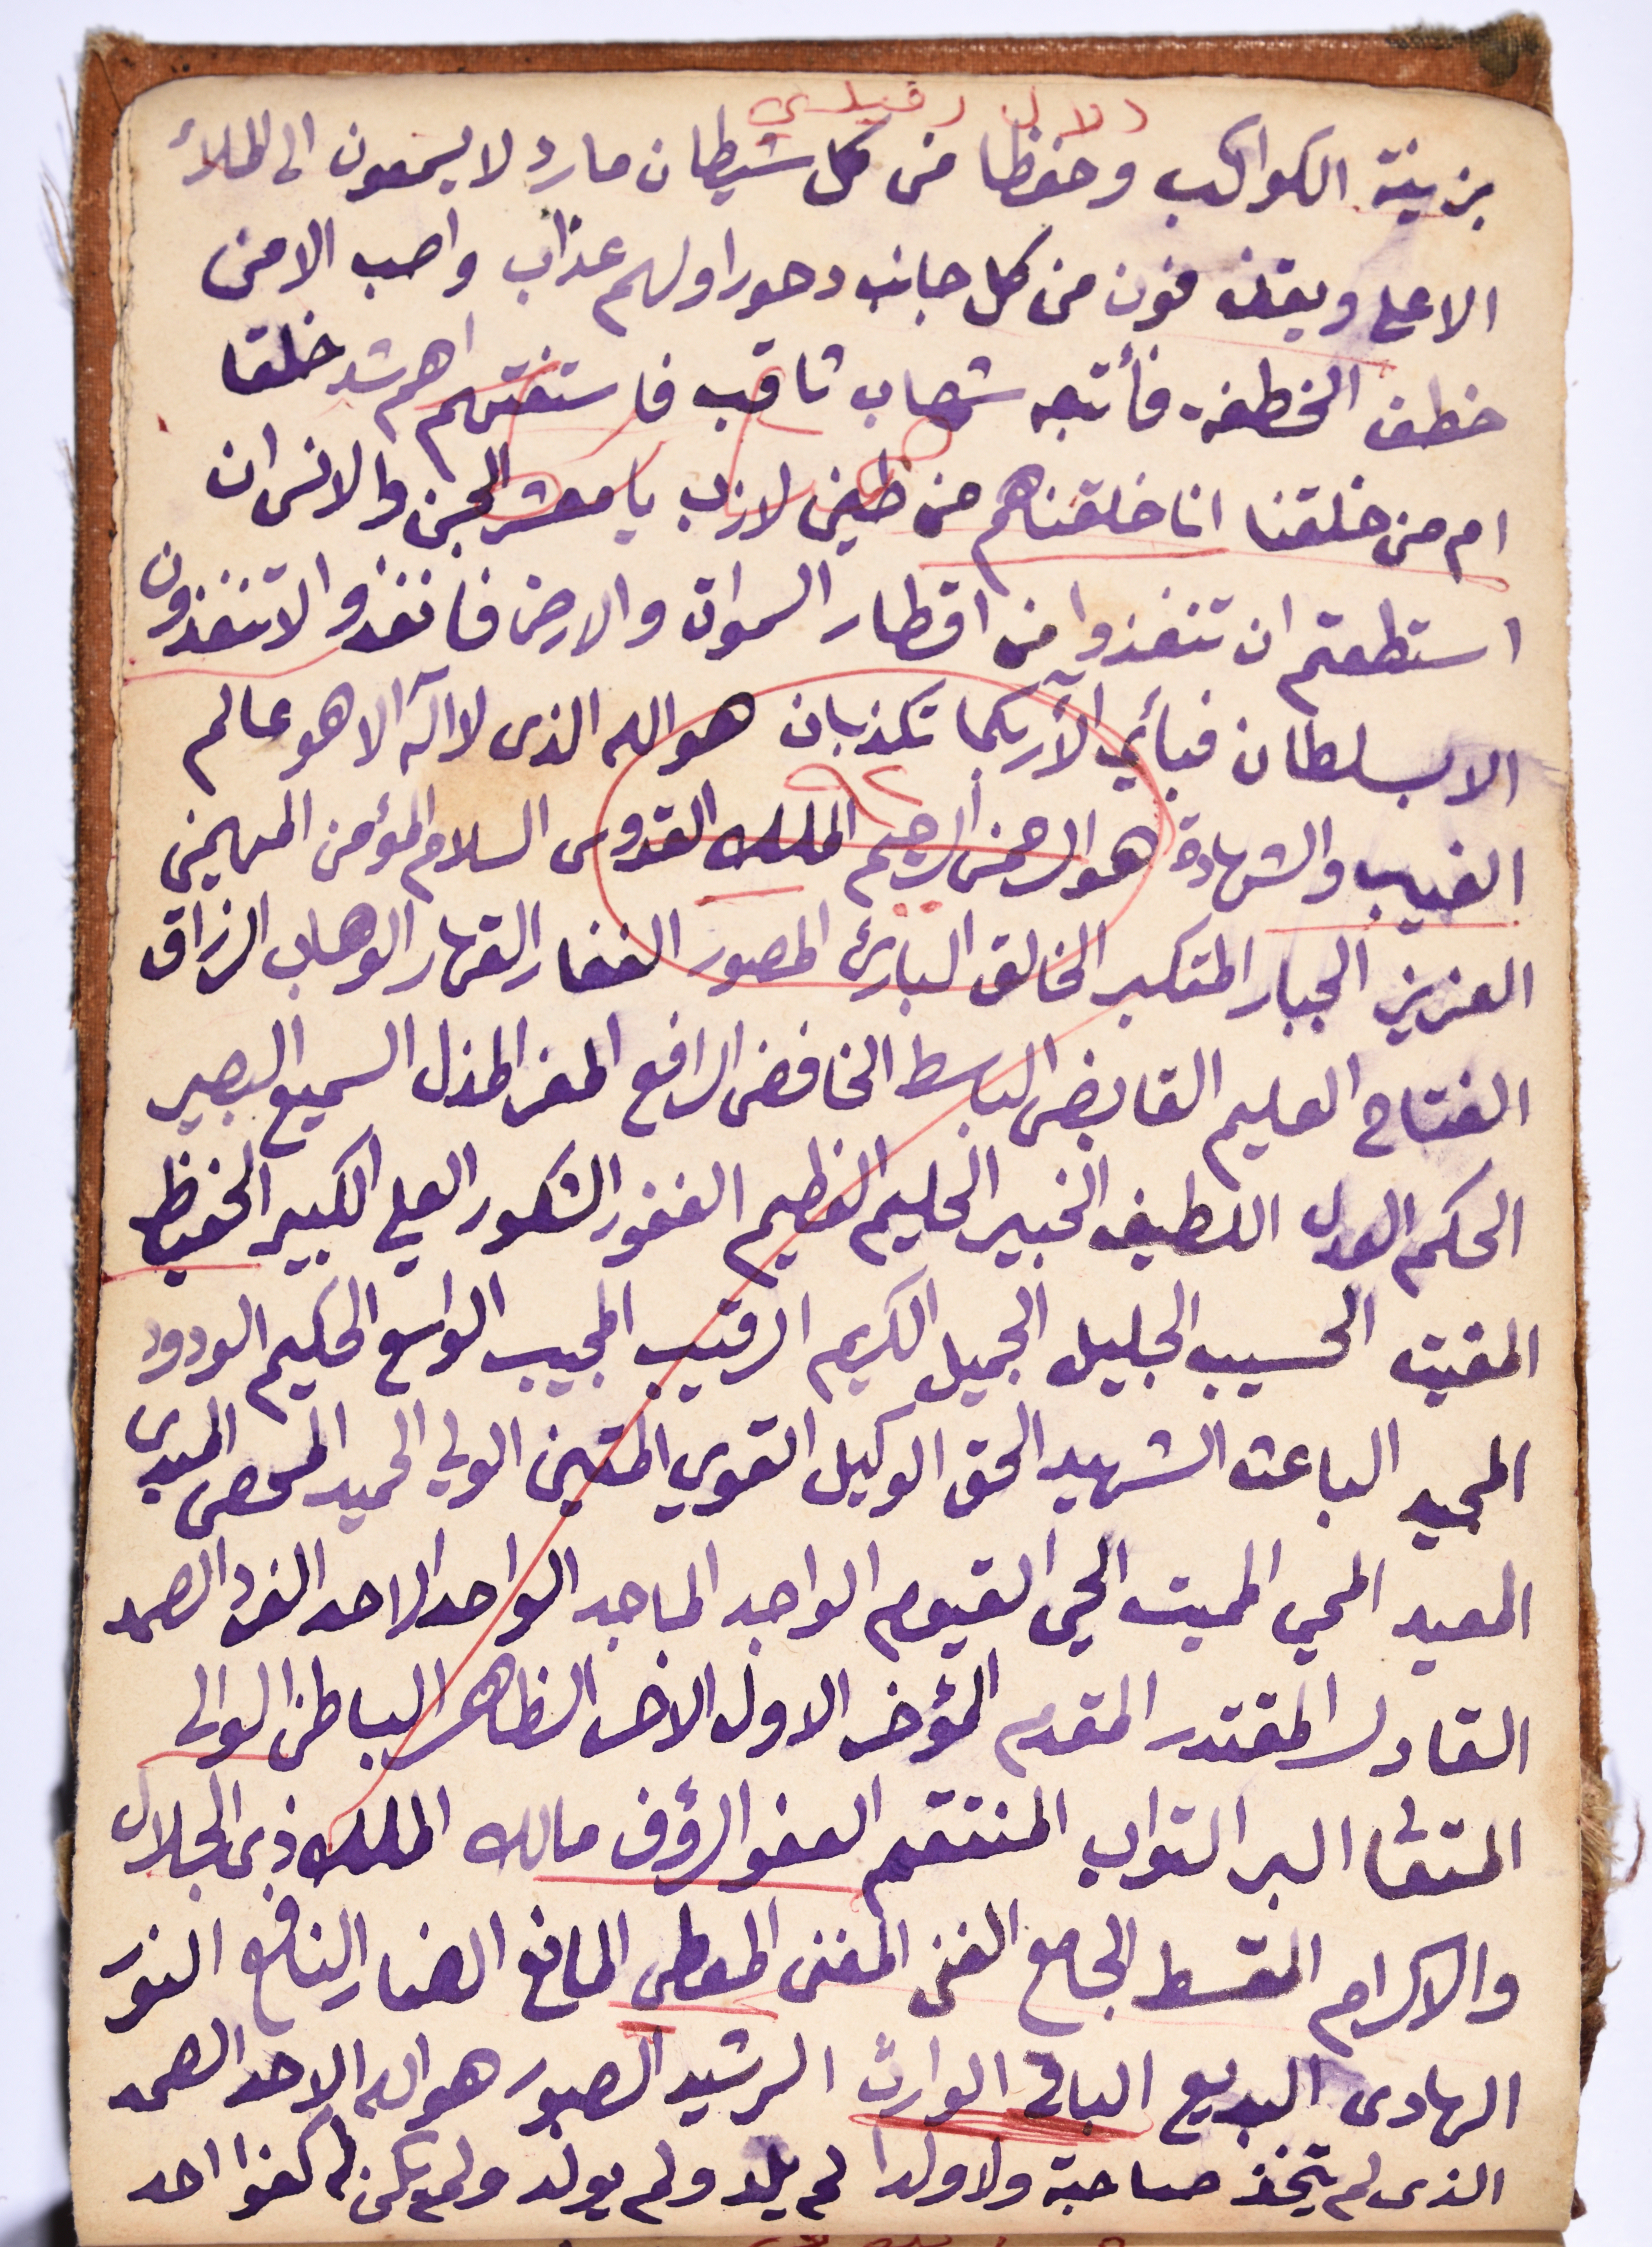 بزينة الكواكب وحفظا من كل شيطان مارد لا يسمعون الى الملاء
الاعلى ويقذفون من كل جانب دحورا ولهم عذاب واصب الا من
خطف الخطفة فأتبعه شهاب ثاقب فاستفتهم اهم شد خلقا
ام من خلقنا انا خلقناهم من طين لازب يا معشر الجن والانس ان
استطعتم ان تنفذوا من اقطار السموات والارض فانفذوا لا تنفذون
الا بسلطان فبأي آلآ ربكما تكذبان هو الله الذى لا اله الا هو عالم
الغيب والشهادة هو الرحمن الرحيم الملك القدوس السلام المؤمن المهيمن
العزيز الجبار المتكبر الخالق البارئ المصور الغفار القهار الوهاب الرزاق
الفتاح العليم القابض الباسط الخافض الرافع المعز المذل السميع البصير
الحكم العدل اللطيف الخبير الحليم العظيم الغفور الشكور العلي الكبير الحفيظ
المقيت الحسيب الجليل الجميل الكريم الرقيب المجيب الواسع الحكيم الودود
المجيد الباعث الشهيد الحق الوكيل القوي المتين الولي الحميد المحصى المبدى
المعيد المحي المميت الحي القيوم الواجد الماجد الواحد الاحد الفرد الصمد
القادر المقتدر المقدم المؤخر الاول الاخر الظاهر الباطن الوالى
المتعا البر التواب المنتقم العفو الرؤف مالك الملك ذى الجلال
والاكرام المقسط الجامع الغنى المغنى المعطى المانع الضار النافع النور
الهادى البديع الباقى الوارث الرشيد الصبور هو الله الاحد الصمد
الذى لم يتخذ صاحبة ولا ولدا لم يلد ولم يولد ولم يكن له كفوا احد